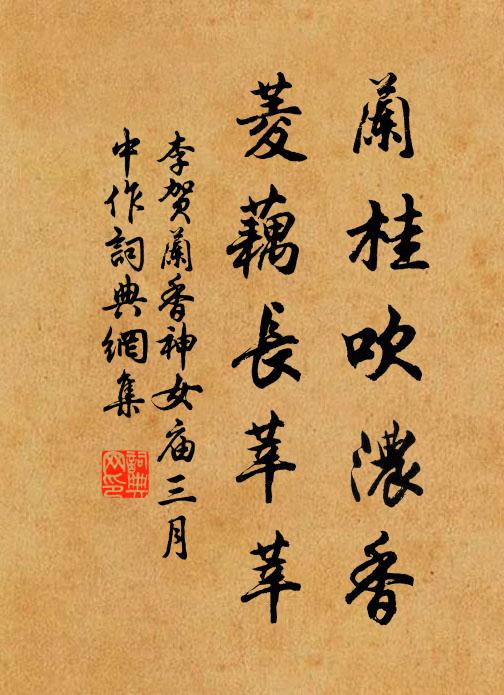 蘭桂吹濃香
菱藕長莘莘
李賀蘭香神女庙三月
中作詞典網集
詞典
网印